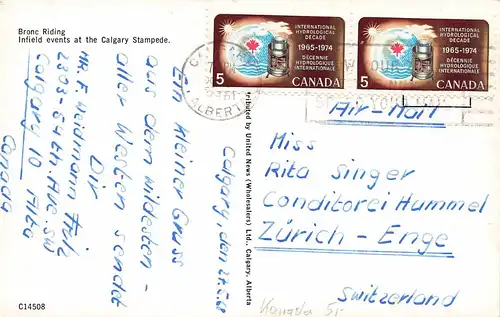 Bronc Riding
Infield events at the Calgary Stampede.
INTERNATIONAL
HYDROLOGICAL
DECADE
1965-1974
DÉCENNIE
HYDROLOGIQUE
INTERNATIONALE
5 CANADA
INTERNATIONAL
HYDROLOGICAL
DECADE
1965-1974
DÉCENNIE
HYDROLOGIQUE
INTERNATIONALE
5 CANADA
ALBERTA
Air-Mail
Miss
Rita Singer
Conditorei Hummel
Zürich-Enge
Switzerland
Calgary, den 27.5.68
Ein kleiner Gruss
aus dem wildesten
aller Westen sendet
Dir
Mr. F. Weidmann
2803-64th. Ave SW
Calgary 10 Alta
Canada
tributed by United News (Wholesalers) Ltd., Calgary, Alberta
C14508
Kanada